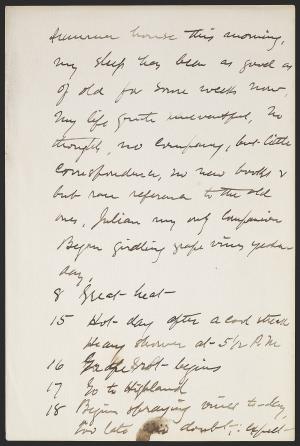 summer house this morning,
my sleep has been as good as
of old for some weeks now,
my life quite uneventful, no
thought, no company, but little
correspondence, no new books &
but rare reference to the old
ones, Julian my only companion
Begin girdling grape vines yester-
day,
8 Great heat
15 Hot day after a cool streak
Heavy shower at 5 1/2 P.M
16 Grape rot begins
17 Go to Highland
18 Begin spraying vines to-day,
too late no doubt,